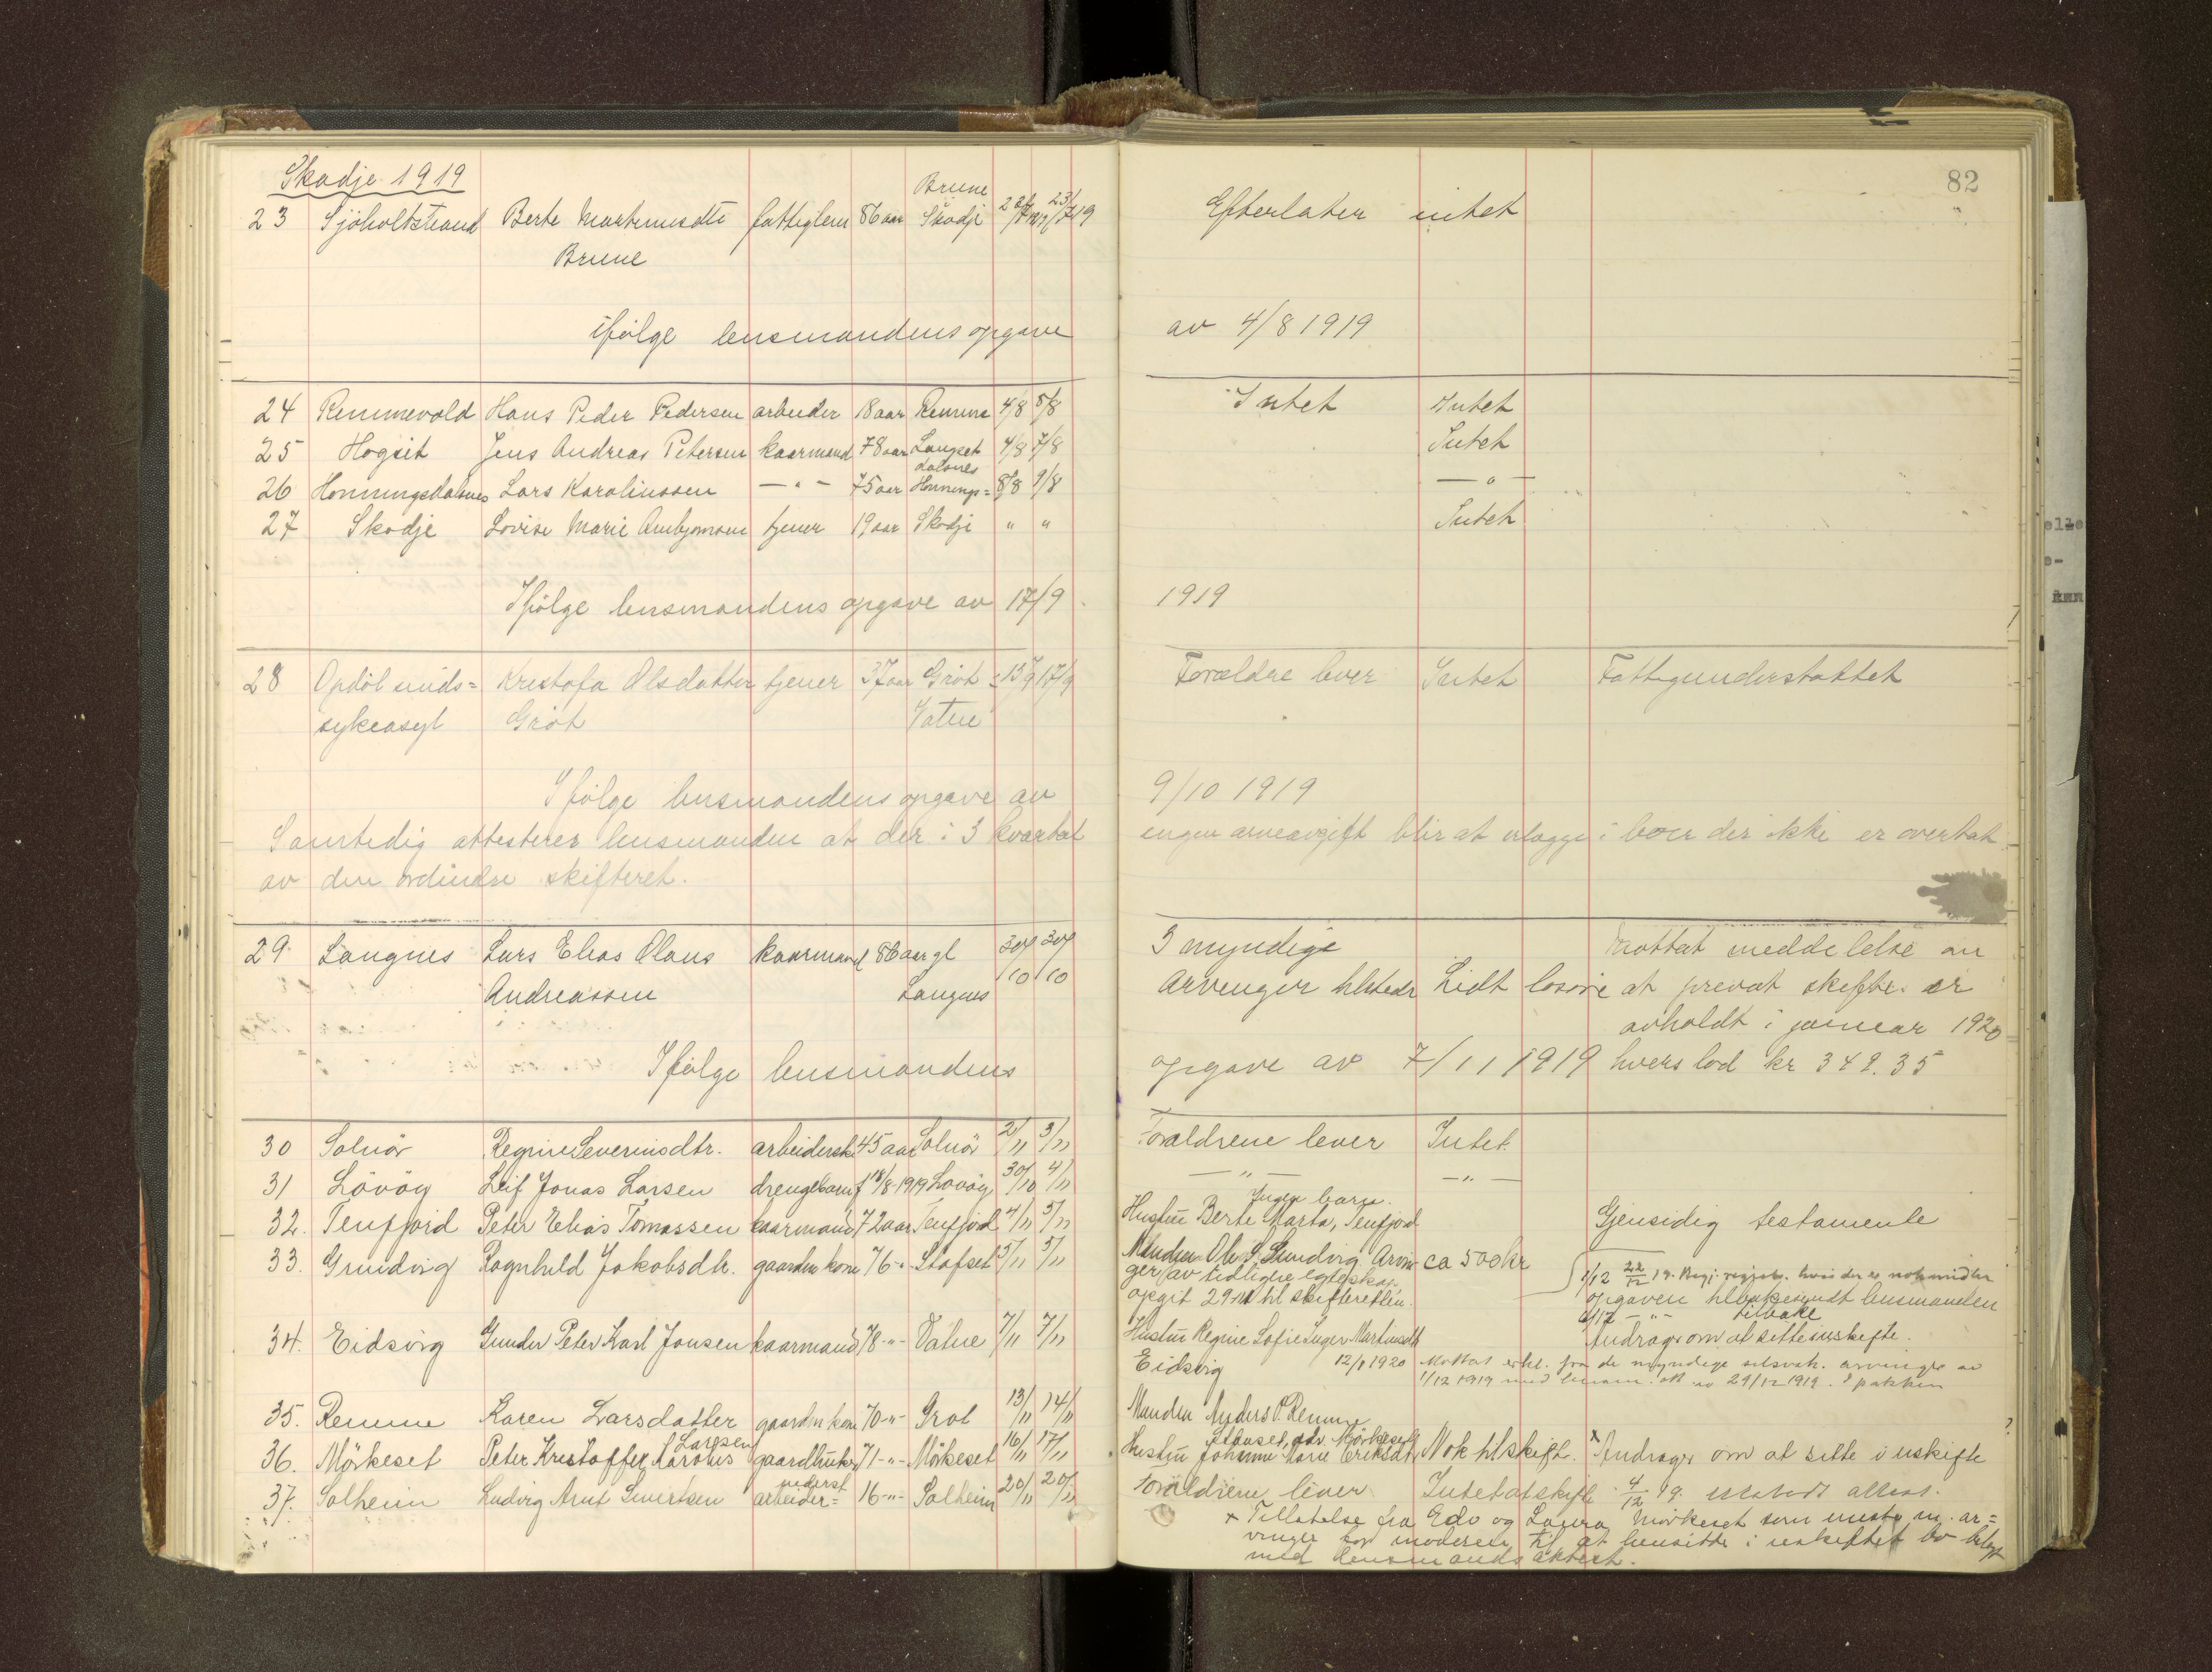 Skodje 1919
82
Brune
23 Sjøholtstrand Berte Martinusdtr fattiglem 86 aar Skodje 22/7 1919 23/7 19 Efterlater intet
Brune
ifölge lensmandens opgave av 4/8 1919
24 Remmevold Hans Peder Pedersen arbeider 18 aar Remme 4/8 5/8 Intet Intet
25 Hogset Jens Andreas Petersen kaarmand 78 aar Langset 4/8 7/8 Intet
dalsnes
26 Honningsdalsnes Lars Karolinssen — " — 75 aar Honnings= 8/8 9/8 — " —
27 Skodje Lovise Marie Arnbjornsen tjener 19 aar Skodje " " Intet
Ifölge lensmandens opgave av 17/9 1919
28 Opdöl sinds= Krestofa Olsdatter tjener 37 aar Gröt = 15/9 17/9 Forældre lever Intet Fattigunderstøttet
sykeasyl Gröt Vatne
Ifölge lensmandens opgave av 9/10 1919
Samtidig attesterer lensmanden at der i 3 kvartal ingen arveavgift blir at erlægge i boer der ikke er overtat
av den ordinære skifteret.
29 Langnes Lars Elias Olaus kaarmand 86 aar gl 30/10 30/10 3 myndige Mottat meddelelse om
Andreassen Langnes arvenger tilstede Lidt losøre at prevat skifte er
avholdt i januar 1920
Ifölge lensmandens opgave av 7/11 1919 hvers lod kr 349.35
30 Solnör Regine Severinsdtr. arbeiderske 45 aar Solnör 2/11 3/11 Forældrene lever Intet
31 Lövöy Leif Jonas Larsen drengebarn f 18/8-1919 Lovöy 30/10 4/11 — " — — " —
Ingen barn.
32. Tenfjord Peter Elias Tomassen kaarmand 72 aar Tenfjord 4/11 5/11 Hustru Berte Marta, Tenfjord Gjensidig testamente
33. Grindvig Ragnhild Jakobsdtr. gaardm kone 76 -"- Stafset 5/11 5/11 Manden Ole S. Grindvig. Arvin= ca 500 kr
ger av tidligere egteskap 1/12 22/12 19. hvis der er nok midler
opgit 29/11 til skifteretten. opgaven tilbakesendt lensmanden
tilbake
34. Eidsvig Gunder Peter Karl Jonsen kaarmand 78 -"- Vatne 7/11 7/11 Hustru Regine Sofie Inger Martinsdtr Andrager om at sitte i uskifte.
Eidsvig 12/1 1920 Mottat erkl. fra de myndige arvinger av
1/12 1919 med lensm. att. av 29/12 1919. I pakken
35. Remme Karen Larsdatter gaardm kone 70 -"- Grot 13/11 14/11 Manden Anders P. Remme
Larssen
36. Mörkeset Peter Krestoffer Karolus gaardbruker 71 -"- Mörkeset 16/11 17/11 Hustru Johanne Marie Eriksdtr Nok til skifte. x Andrager om at sitte i uskifte
nederst
37. Solheim Ludvig Arnt Sivertsen arbeider= 16 -"- Solheim 20/11 20/11 Forældrene lever Intet at skifte 4/12 19. utstedt attest.
x Tillatelse fra Edv og Laura Mörkeset som eneste m. ar=
vinger for moderen til at hensitte i uskiftet bo belagt
med lensmands attest.